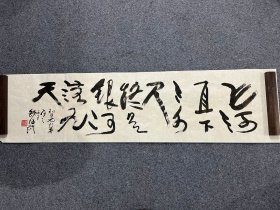 飞流
直下
三千
尺
疑是
银河
落九
天